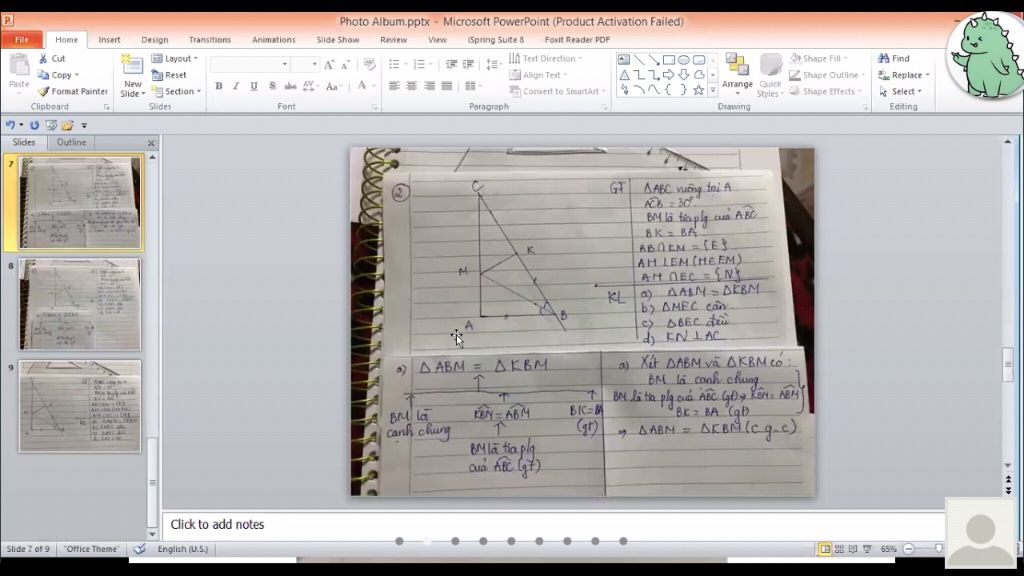 Photo Album.pptx - Microsoft PowerPoint (Product Activation Failed)
File Home Insert Design Transitions Animations Slide Show Review View iSpring Suite 8 Foxit Reader PDF
Cut
Copy
Format Painter
Paste
Clipboard
New Slide
Layout
Reset
Section
Slides
Font
Text Direction
Align Text
Convert to SmartArt
Paragraph
Arrange
Quick Styles
Shape Fill
Shape Outline
Shape Effects
Drawing
Find
Replace
Select
Editing
Slides Outline
7
8
9
②
C
K
M
A
B
GT
ΔABC vuông tại A
ACB = 30°
BM là tia plg của ABC
BK = BA
AB∩KM = {E}
AH ⊥EM (HEEM)
AH ∩EC = {N}
KL
a) ΔABM = ΔKBM
b) ΔMEC cân
c) ΔBEC đều
d) KN ⊥AC
a) ΔABM = ΔKBM
BM là
cạnh chung
KBM = ABM
BK = BA
(gt)
BM là tia plg
của ABC (gt)
a) Xét ΔABM và ΔKBM có:
BM là cạnh chung
BM là tia plg của ABC (gt) => KBM = ABM
BK = BA (gt)
=> ΔABM = ΔKBM (c.g.c)
Click to add notes
Slide 7 of 9 "Office Theme" English (U.S.) 65%